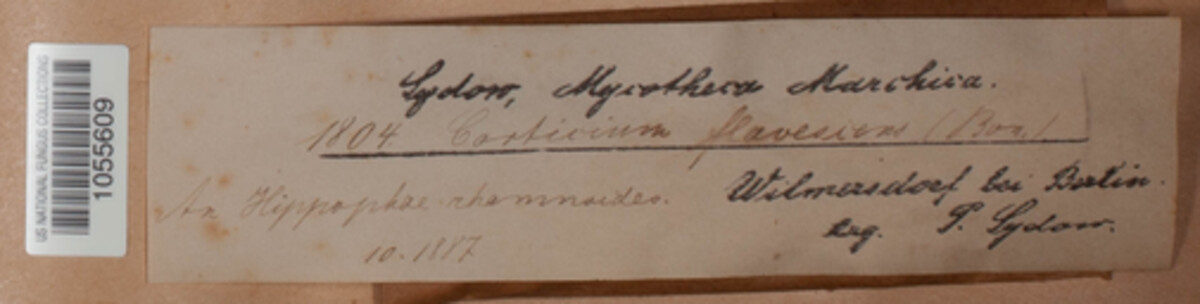 US NATIONAL FUNGUS COLLECTIONS
10559609
Sydow, Mycotheca Marchica.
1804. Corticium flavescens (Bon.)
An Hippophae rhamnoides.
10. 1887
Wilmersdorf bei Berlin.
leg. P. Sydow.